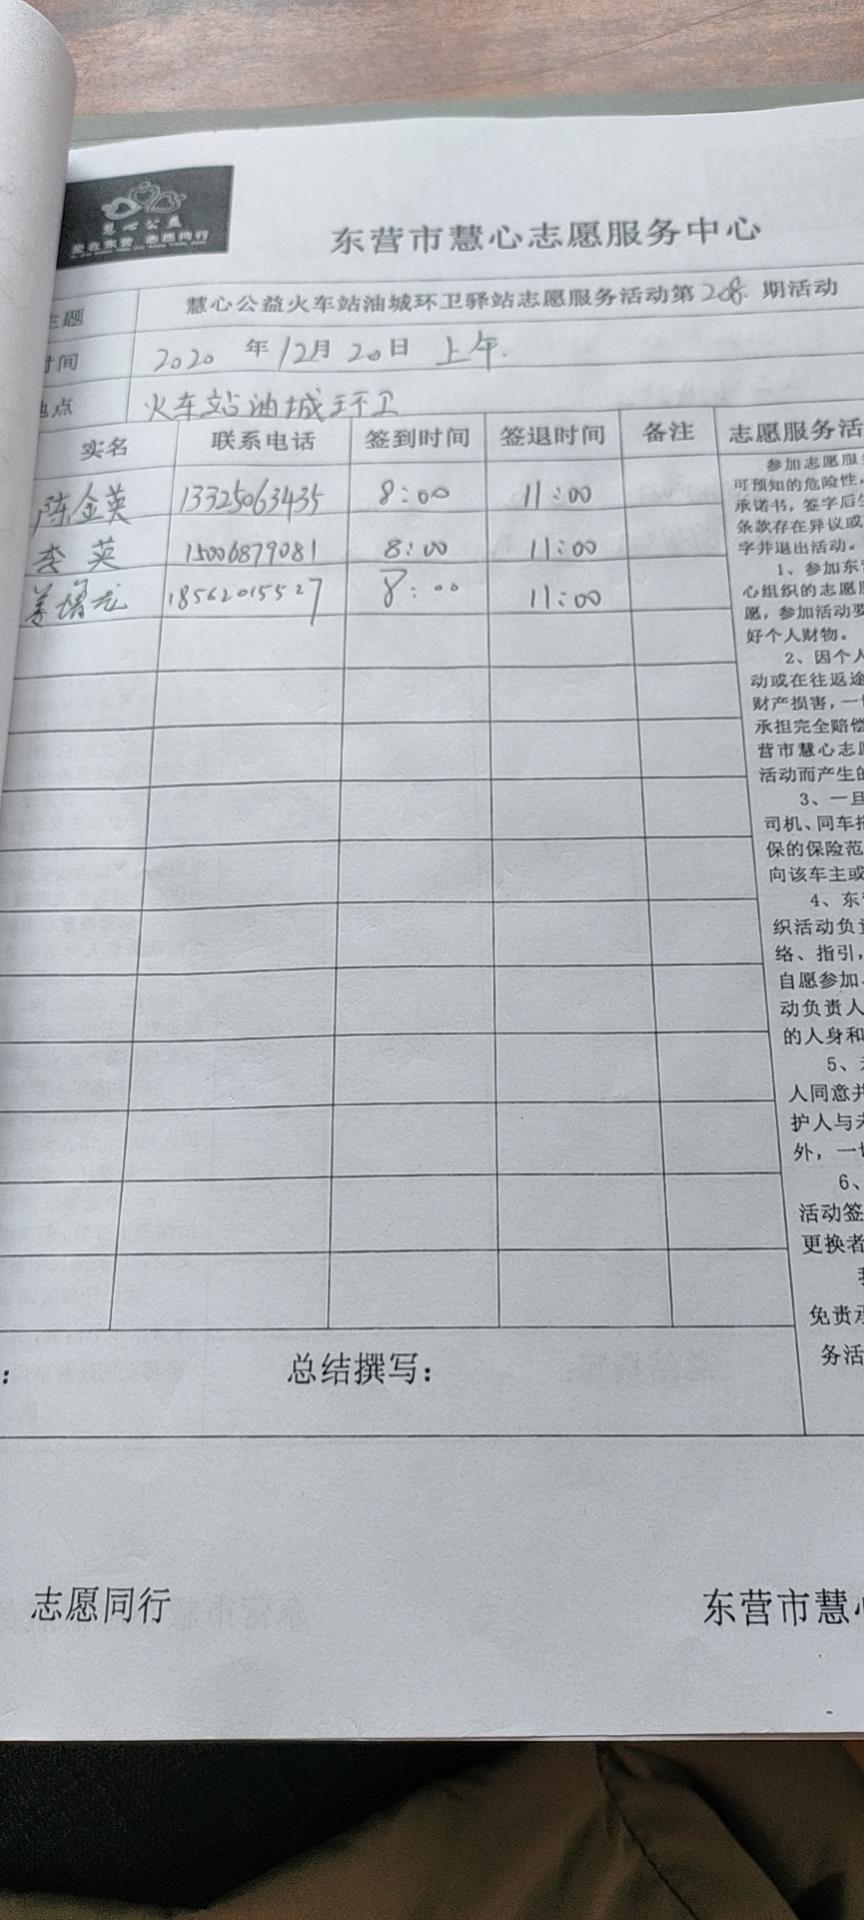 慧心公益
爱在东营 志愿同行
东营市慧心志愿服务中心
主题 慧心公益火车站油城环卫驿站志愿服务活动第208.期活动
时间 2020年12月20日 上午.
地点 火车站油城环卫
实名 联系电话 签到时间 签退时间 备注 志愿服务活
陈金英 13325063435 8:00 11:00
李英 15006879081 8:00 11:00
18562015527 8:00 11:00
参加志愿服务
可预知的危险性,
承诺书,签字后生
条款存在异议或
字并退出活动。
1、参加东营
心组织的志愿服
愿,参加活动要
好个人财物。
2、因个人
动或在往返途
财产损害,一切
承担完全赔偿
营市慧心志愿
活动而产生的
3、一旦
司机、同车搭
保的保险范
向该车主或
4、东营
织活动负责
络、指引,
自愿参加、
动负责人
的人身和
5、未
人同意并
护人与未
外,一切
6、
活动签
更换者
我
免责承
务活
: 总结撰写:
志愿同行 东营市慧心